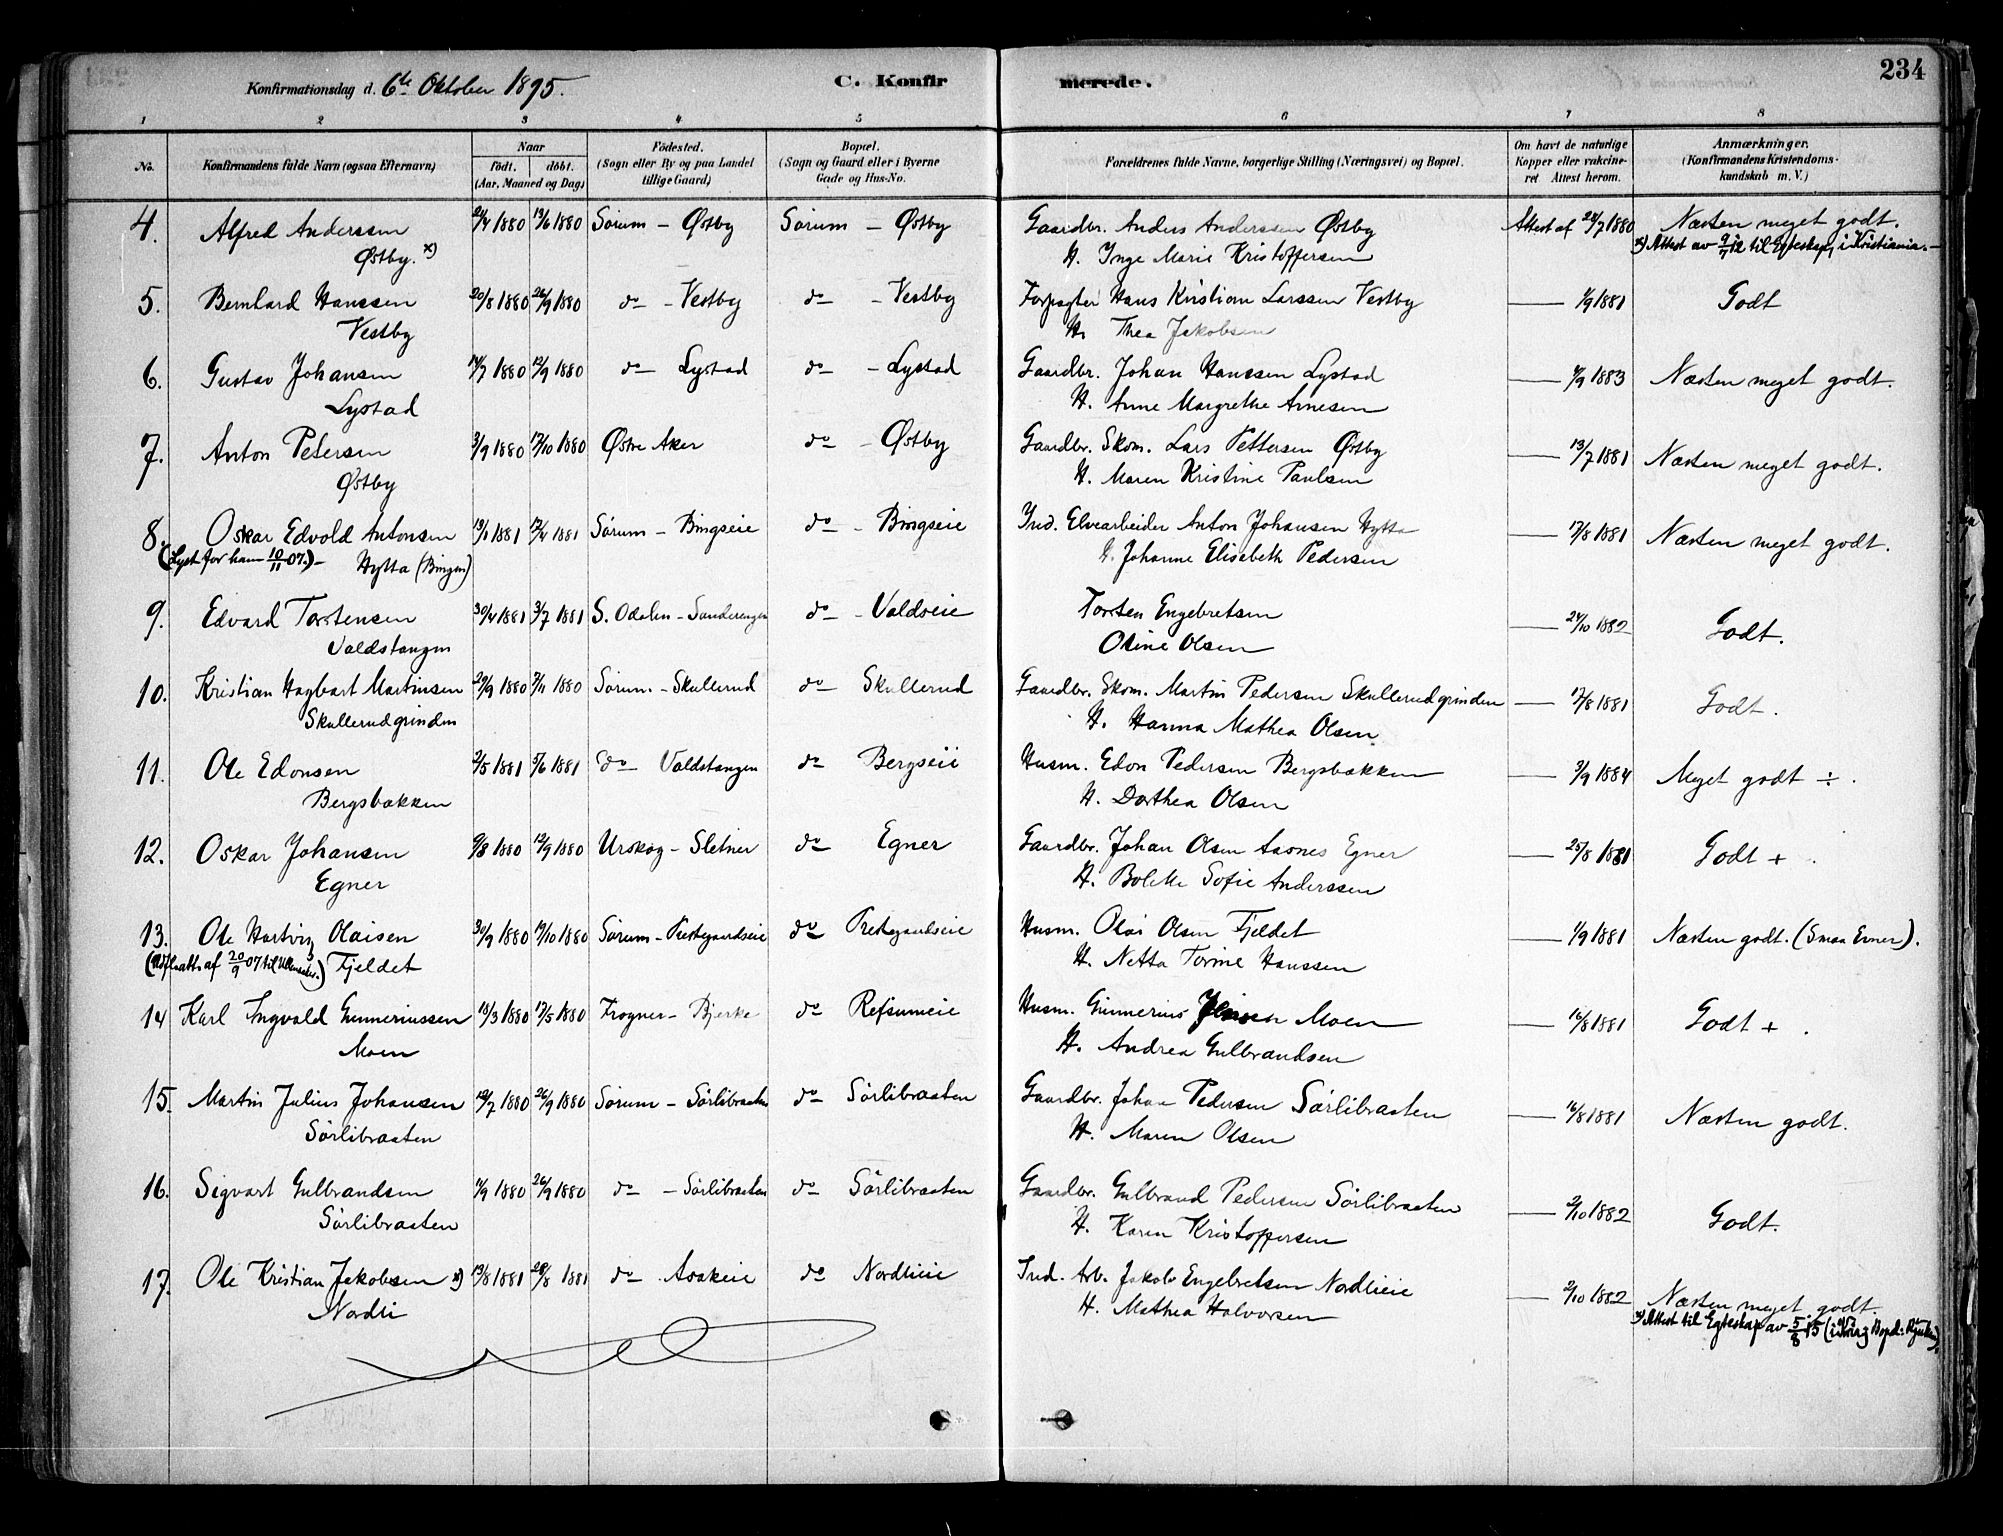 234
Konfirmationsdag d. 6te Oktober 1895.
C. Konfirmerede.
1 2 3 4 5 6 7 8
No. Konfirmandens fulde Navn (ogsaa Efternavn) Naar født. døbt. (Aar, Maaned og Dag) Fødested. (Sogn eller By og paa Landet tillige Gaard) Bopæl. (Sogn og Gaard eller i Byerne Gade og Hus-No. Forældrenes fulde Navne, borgerlige Stilling (Næringsvei) og Bopæl. Om havt de naturlige Kopper eller vakcineret Attest herom. Anmærkninger. (Konfirmandens Kristendomskundskab m. V.)
4. Alfred Anderssen 2/4 1880 13/6 1880 Sørum - Østby Sørum - Østby Gaardbr. Anders Anderssen Østby Attest af 28/7 1880 Næsten meget godt.
Østby. x) H. Inge Marie Kristoffersen x) Attest av 9/7 12 til Egteskap, i Kristiania.-
5. Bernhard Hanssen 20/8 1880 26/9 1880 do - Vestby do - Vestby Forpagter Hans Kristian Larssen Vestby — 1/9 1881 Godt
Vestby H. Thea Jakobsen
6. Gustav Johansen 14/7 1880 12/9 1880 do - Lystad do - Lystad Gaardbr. Johan Hanssen Lystad — 4/9 1883 Næsten meget godt.
Lystad H. Anne Margrethe Arnesen
7. Anton Petersen 3/9 1880 17/10 1880 Østre Aker do - Østby Gaardbr. Skom. Lars Pettersen Østby — 13/7 1881 Næsten meget godt.
Østby H. Maren Kristine Paulsen
8. Oskar Edvold Antonsen 19/1 1881 17/4 1881 Sørum - Bingseie do - Bingseie Ind. Elvearbeider Anton Johansen Hytta — 17/8 1881 Næsten meget godt.
(Lyst for ham 10/11 07.)- Hytta (Bingen) H. Johanne Elisabeth Pedersen
9. Edvard Torstensen 30/4 1881 3/7 1881 S. Odalen - Sanderengen do - Valdseie Torsten Engebretsen — 24/10 1882 Godt.
Valdstangen Oline Olsen
10. Kristian Hagbart Martinsen 29/9 1880 7/11 1880 Sørum - Skullerud do Skullerud Gaardbr. Skom. Martin Pedersen Skullerudgrinden — 17/8 1881 Godt.
Skullerudgrinden H. Hanna Mathea Olsen
11. Ole Edonsen 2/5 1881 5/6 1881 do Valdstangen do Bergseie Husm. Edon Pedersen Bergsbakken — 3/9 1884 Meget godt ÷.
Bergsbakken H. Dorthea Olsen
12. Oskar Johansen 9/8 1880 12/9 1880 Urskog - Sletner do Egner Gaardbr. Johan Olsen Aasnes Egner — 25/8 1881 Godt +.
Egner H. Bolette Sofie Anderssen
13. Ole Hartvig Olaisen 30/9 1880 19/10 1880 Sørum - Prestegaardseie do Prestegaardseie Husm. Olai Olsen Fjeldet — 1/9 1881 Næsten godt. (Smaa Evner).
(Udflattet af 20/9 07 til Ullensaker.) Fjeldet H. Netta Torine Hanssen
14 Karl Ingvald Gunneriussen 18/3 1880 17/5 1880 Frogner - Bjerke do Refsumeie Husm. Gunnerius Moen — 16/8 1881 Godt +.
Moen H. Andrea Gulbrandsen
15. Martin Julius Johansen 12/7 1880 26/9 1880 Sørum - Sørlibraaten do Sørlibraaten Gaardbr. Johan Pedersen Sørlibraaten — 16/8 1881 Næsten godt.
Sørlibraaten H. Maren Olsen
16. Sigvart Gulbrandsen 11/9 1880 26/9 1880 do - Sørlibraaten do Sørlibraaten Gaardbr. Gulbrand Pedersen Sørlibraaten — 2/10 1882 Godt.
Sørlibraaten H. Karen Kristoffersen
17. Ole Kristian Jakobsen x) 13/8 1881 28/8 1881 do Aaakeie do Nordlieie Ind. Arb. Jakob Engebretsen Nordlieie — 2/10 1882 Næsten meget godt.
Nordli H. Mathea Halvorsen x) Attest til Egteskap av 5/8 15 Bopæl: Rjukan).